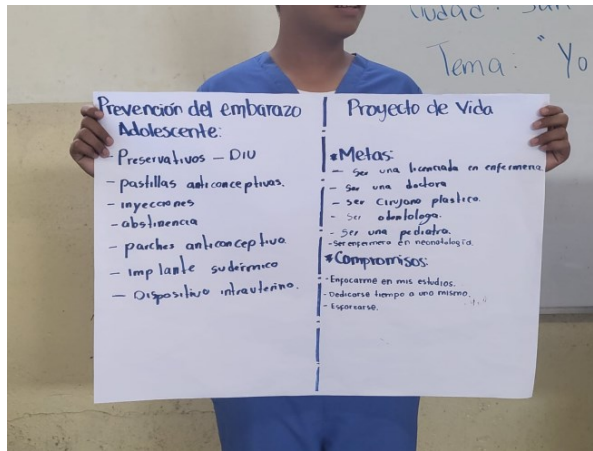 Ciudad: San
Tema: "Yo
Prevención del embarazo
Adolescente:
- Preservativos - DIU
- pastillas anticonceptivas.
- inyecciones
- abstinencia
- parches anticonceptivo.
- Implante sudérmico
- Dispositivo intrauterino.
Proyecto de Vida
*Metas:
- Ser una licenciada en enfermeria
- Ser una doctora
- Ser cirujano plastico.
- Ser odontologa.
- Ser una pediatra.
- Ser enfermero en neonatología.
*Compromisos:
- Enfocarme en mis estudios.
- Dedicarse tiempo a uno mismo.
- Esforzarse.